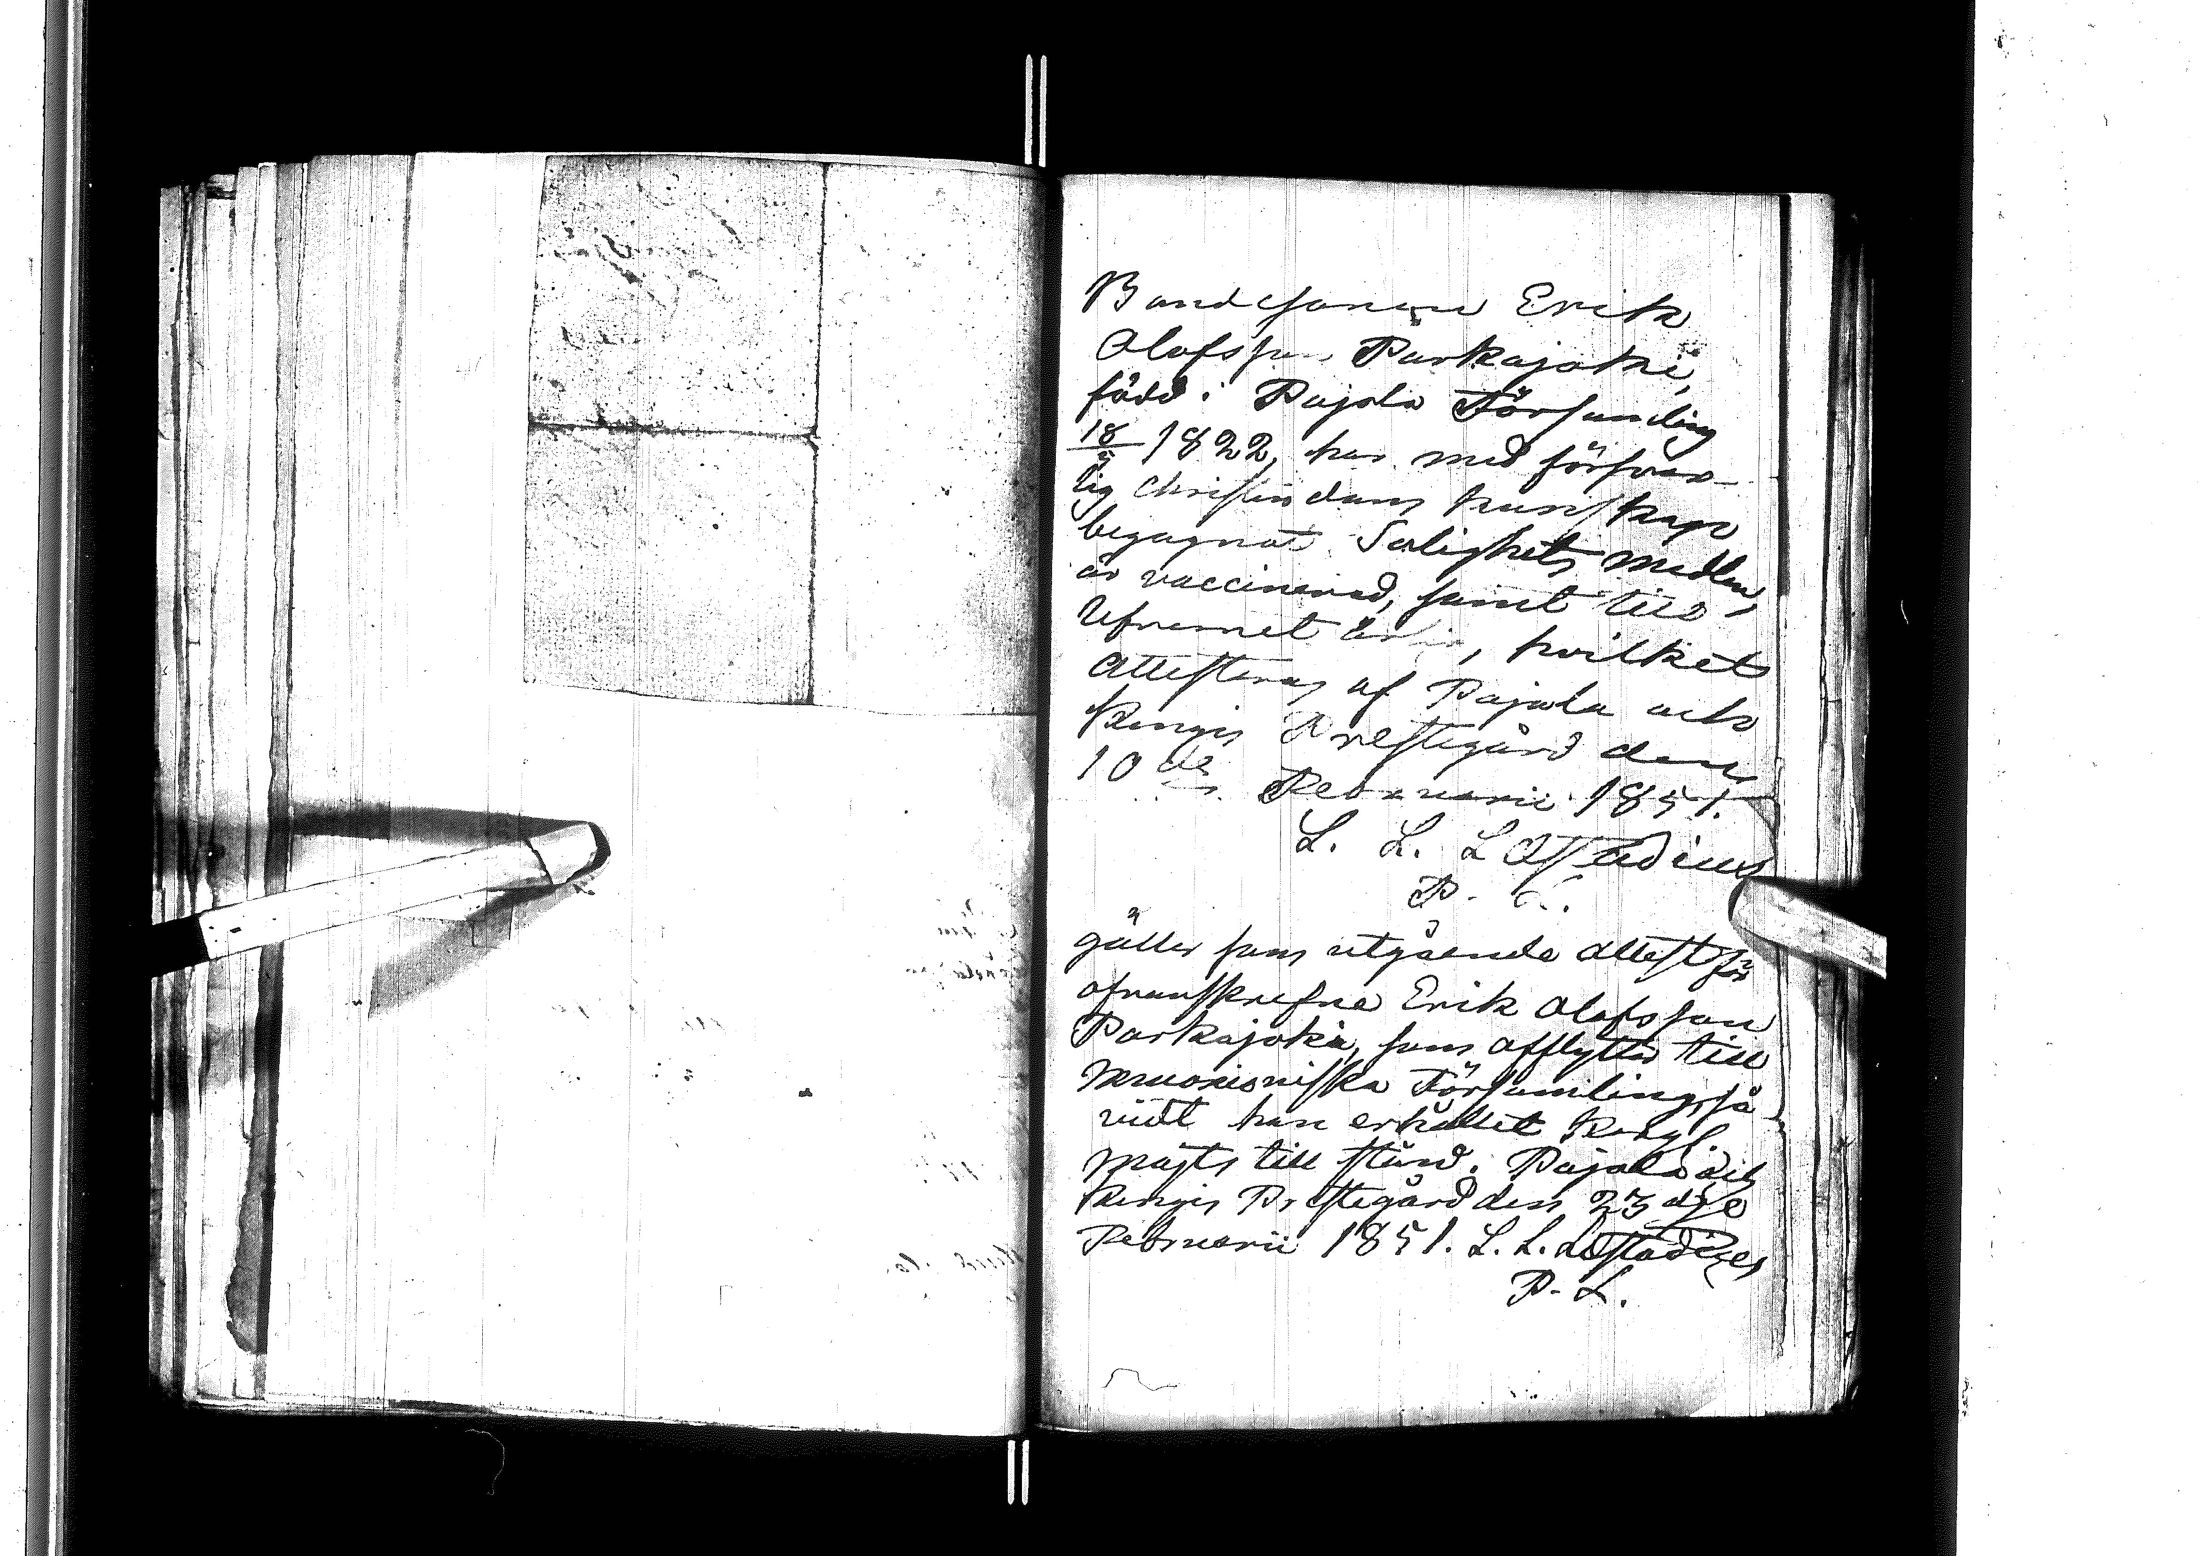 Bondesonen Erik
Olofsson Parkajoki,
född i Pajala Församling
18/5 1822, har med försvar-
lig Christendoms kunskap
begagnat Salighets medlen,
är vaccinerad, samt till
lefvernet ärlig, hvilket
attesteras af Pajala och
Kengis Prestegård den
10de Februarii 1851.
L. L. Læstadius
P. L.
gäller som utgående attest för
ofvanskrefne Erik Olofsson
Parkajoki, som afflyttar till
Muonioniska Församling, så
vidt han erhållit Kongl.
Majts till stånd. Pajala och
Kengis Prestegård den 23dje
Februarii 1851. L. L. Læstadius
P. L.